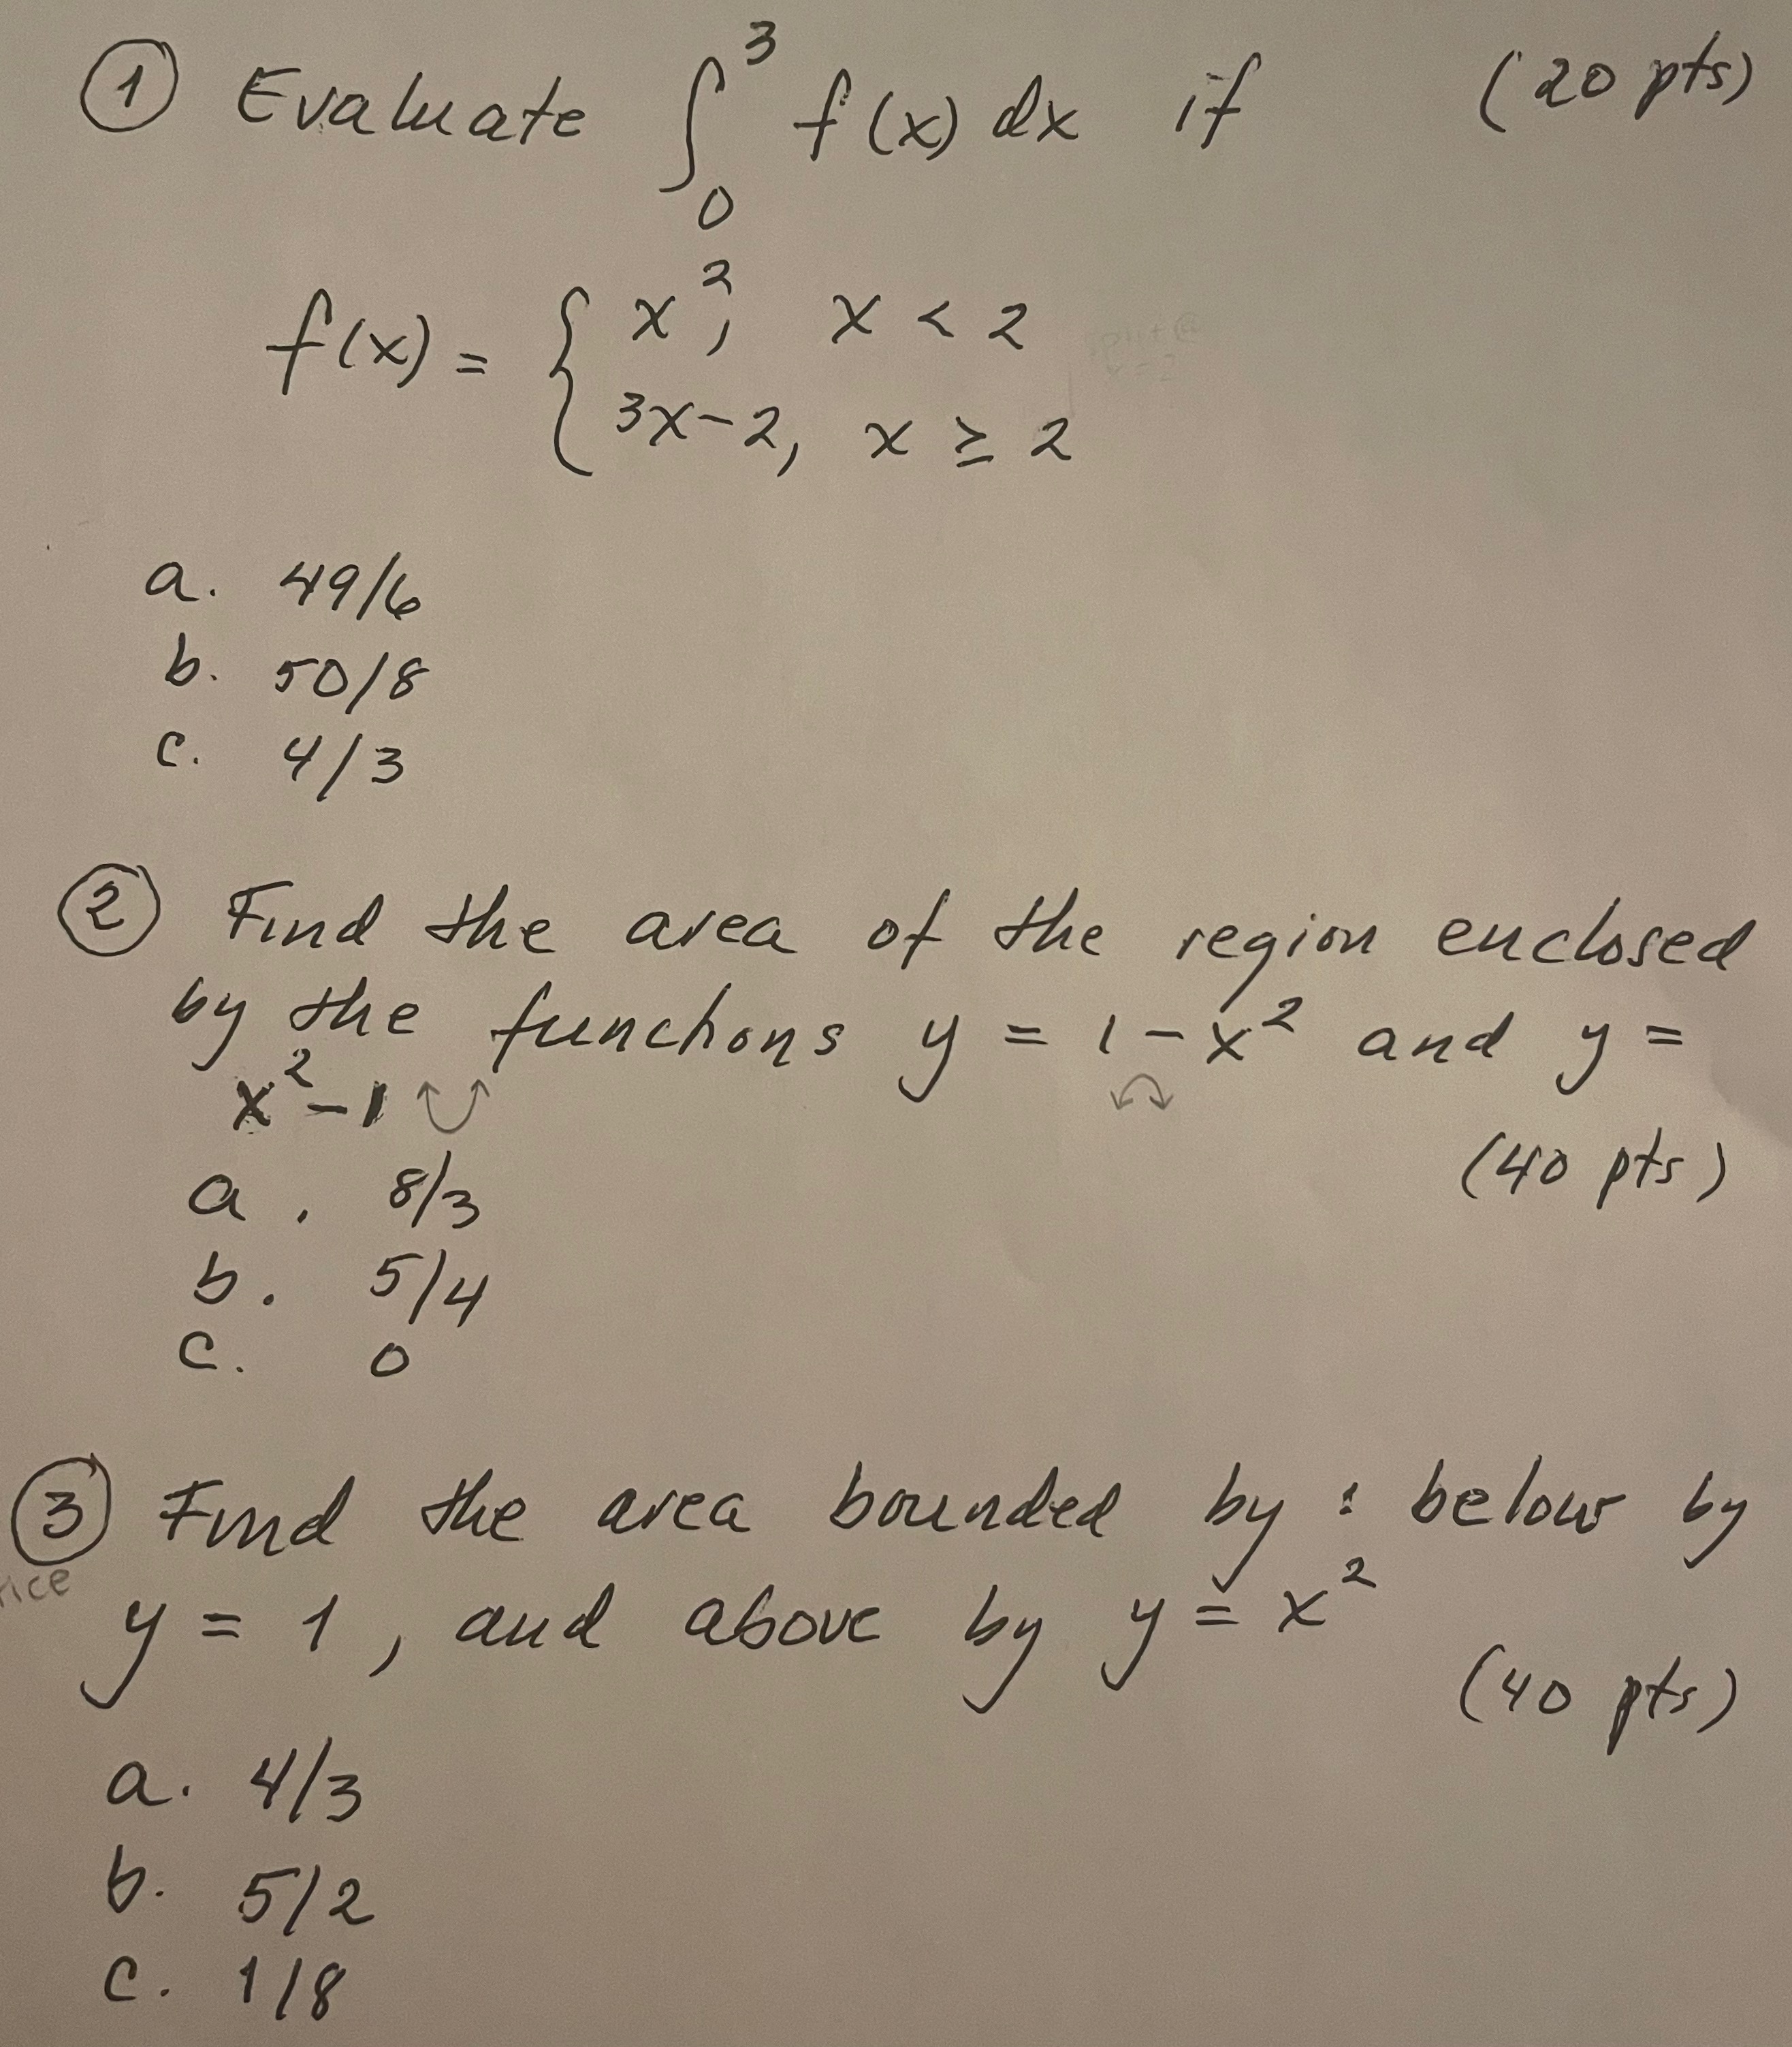 ① Evaluate ∫₀³ f(x) dx if (20 pts)
f(x) = { x², x < 2
3x-2, x ≥ 2
a. 49/6
b. 50/8
c. 4/3
② Find the area of the region enclosed
by the functions y = 1-x² and y =
x²-1
(40 pts)
a. 8/3
b. 5/4
c. 0
③ Find the area bounded by: below by
y = 1, and above by y = x²
(40 pts)
a. 4/3
b. 5/2
c. 1/8